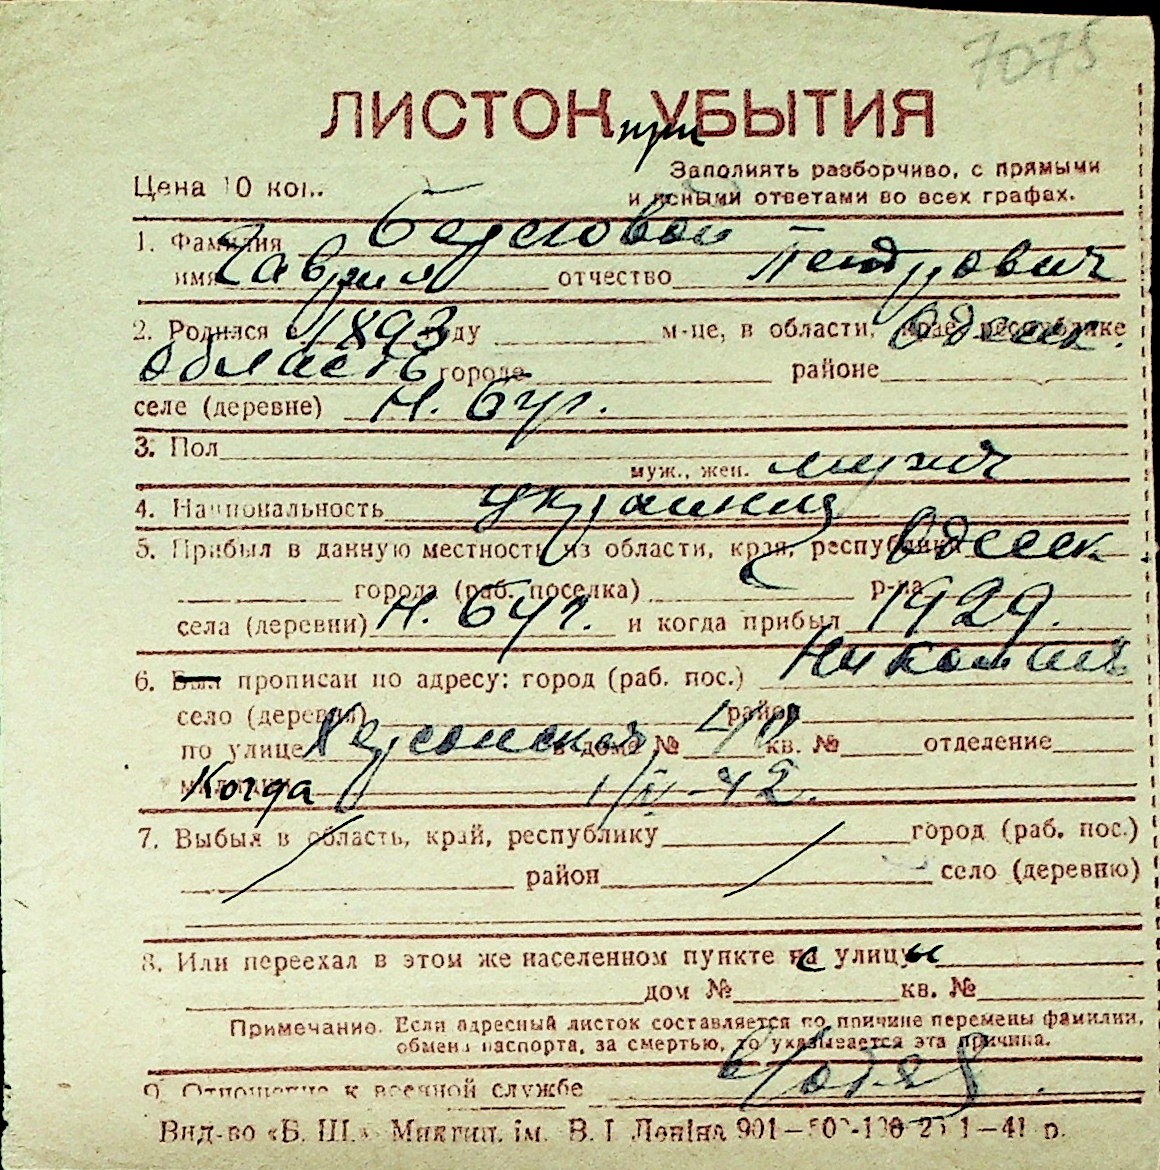 7075
ЛИСТОК УБЫТИЯ
при
Цена 10 коп.
Заполнять разборчиво, с прямыми
и ясными ответами во всех графах.
1. Фамилия Береговой
имя Гаврил отчество Петрович
2. Родился в 1893 году м-це, в области, крае, республике Одесск.
область городе районе
селе (деревне) Н. Буг.
3. Пол
муж., жен. мужч
4. Национальность украинец
5. Прибыл в данную местность из области, края, республики Одесск.
города (раб. поселка) р-на
села (деревни) Н. Буг. и когда прибыл 1929.
6. Был прописан по адресу: город (раб. пос.) Николаев
село (деревня) район
по улице Херсонская в доме № 40 кв. № отделение
милиции Когда 1/IV-42.
7. Выбыл в область, край, республику город (раб. пос.)
район село (деревню)
8. Или переехал в этом же населенном пункте с улицы
дом № кв. №
Примечание. Если адресный листок составляется по причине перемены фамилии,
обмена паспорта, за смертью, то указывается эта причина.
9. Отношение к военной службе
Вид-во «Б. Ш.» Миктип. ім. В. І Леніна 901—500-100 25 1—41 р.